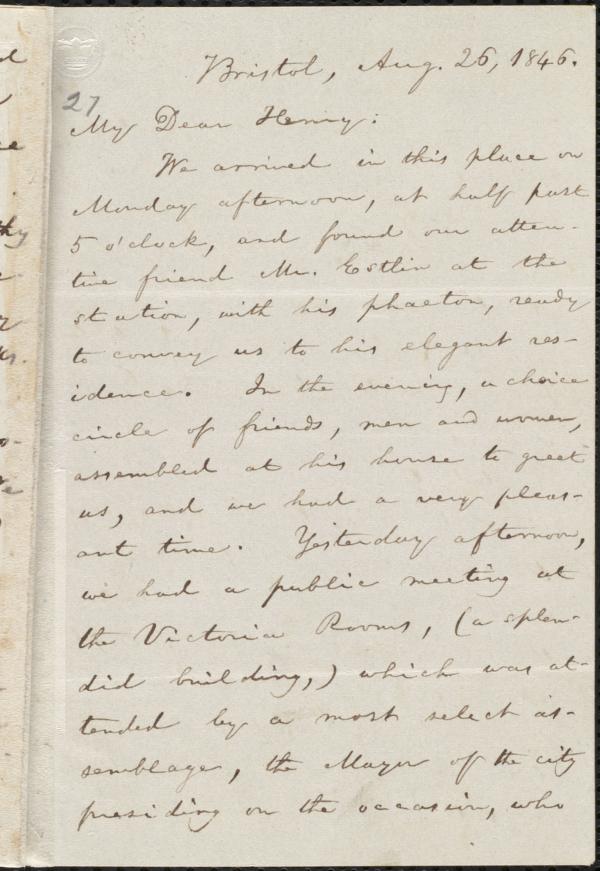 Bristol, Aug. 26, 1846.
27
My Dear Henry:
We arrived in this place on
Monday afternoon, at half past
5 o'clock, and found our atten-
tive friend Mr. Estlin at the
station, with his phaeton, ready
to convey us to his elegant res-
idence. In the evening, a choice
circle of friends, men and women,
assembled at his house to greet
us, and we had a very pleas-
ant time. Yesterday afternoon,
we had a public meeting at
the Victoria Rooms, (a splen-
did building,) which was at-
tended by a most select as-
semblage, the Mayor of the city
presiding on the occasion, who